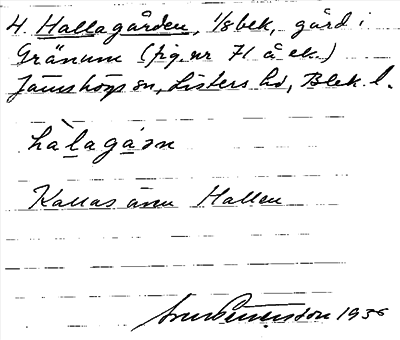 4. Hallagården, 1/8 bek, gård i
Gränum (fig. nr 71 å ek.)
Jämshögs sn, Listers hd, Blek. l.
hàlagásn
Kallas även Hallen
1936